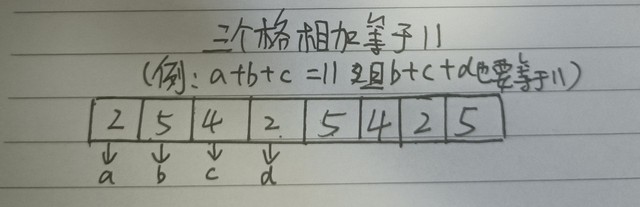 三个格相加等于11
(例：a+b+c=11 且b+c+d也要等于11)
2 5 4 2 5 4 2 5
↓ ↓ ↓ ↓
a b c d